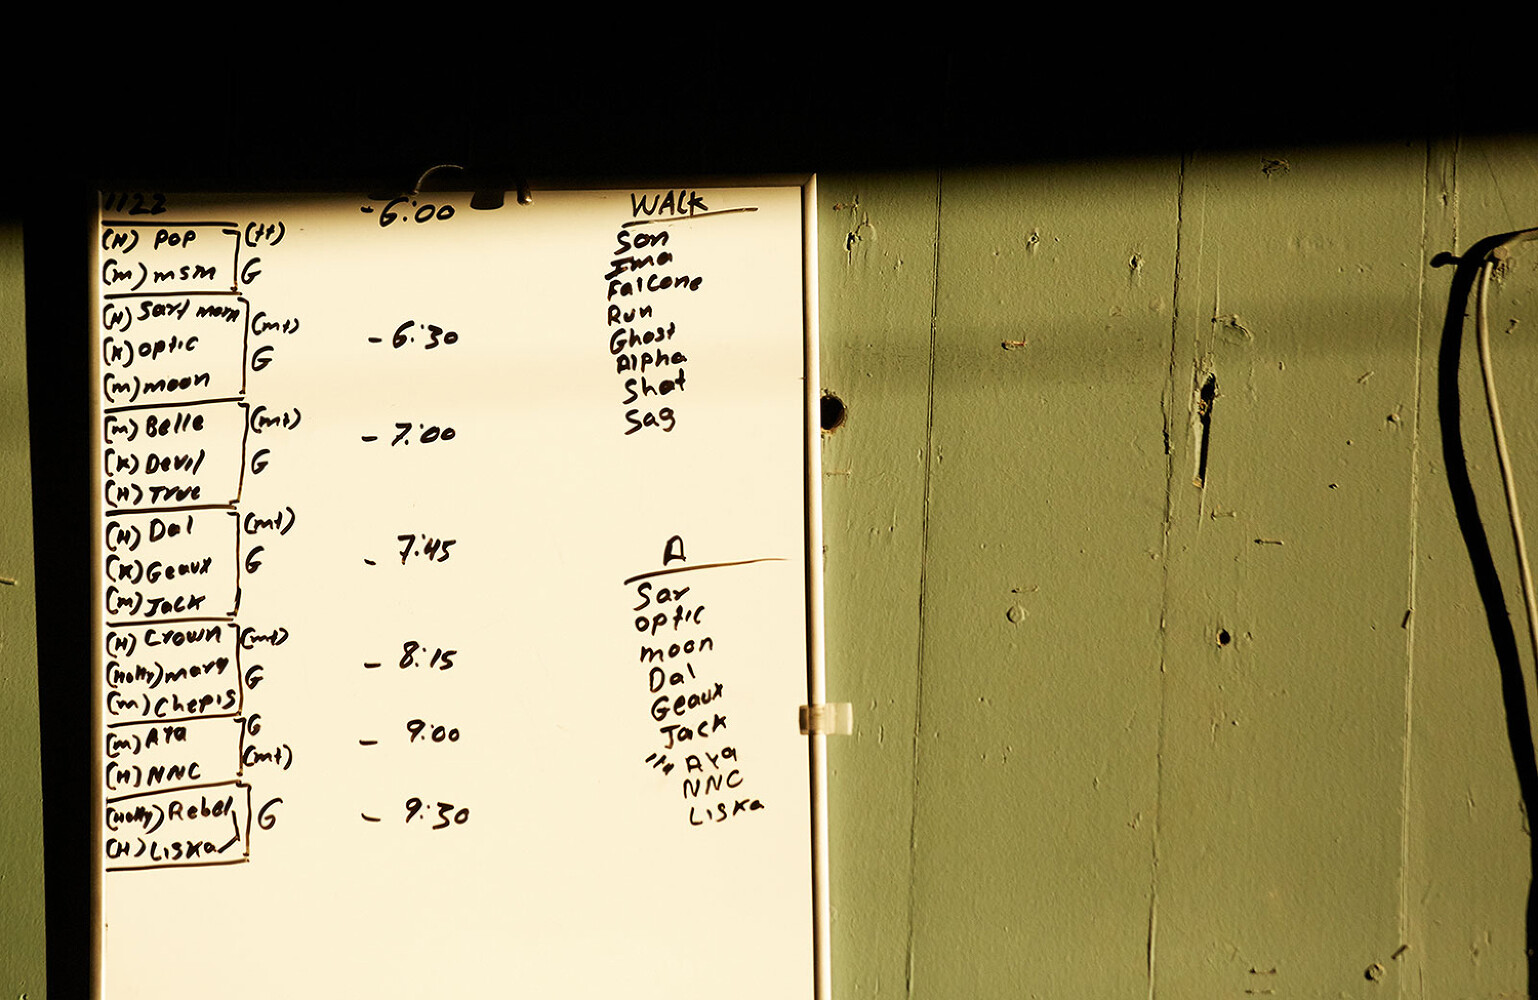 1122
- 6:00
(H) POP (tt)
(m) msm G
(H) Sart mom (mt)
(K) optic G
(m) moon
- 6:30
(m) Belle (mt)
(K) Devil G
(H) True
- 7:00
(H) Dal (mt)
(K) Geaux G
(m) Jack
- 7:45
(H) Crown (mt)
(Holly) mary G
(m) Chepis
- 8:15
(m) AYa G
(H) NNC (mt)
- 9:00
(Holly) Rebel G
(H) Liska
- 9:30
WALK
Son
Ima
Falcone
Run
Ghost
Alpha
Shot
Sag
A
Sar
optic
moon
Dal
Geaux
Jack
AYa
NNC
Liska